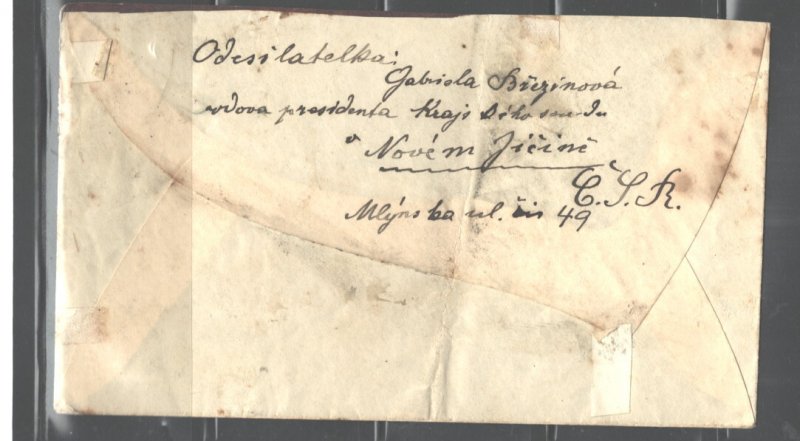 Odesilatelka:
Gabriela Březinová
vdova presidenta Krajského soudu
v Novém Jičíně
Č.S.R.
Mlýnska ul. čís 49